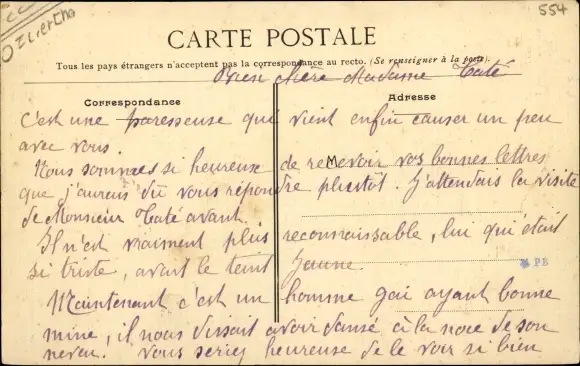 554
CARTE POSTALE
Tous les pays étrangers n'acceptent pas la correspondance au recto. (Se renseigner à la poste).
Bien chère Madame Taté
Correspondance
Adresse
C'est une paresseuse qui vient enfin causer un peu
avec vous.
Nous sommes si heureuse de recevoir vos bonnes lettres
que j'aurais dû vous répondre plustôt. J'attendais la visite
de Monsieur Taté avant.
Il n'est vraiment plus reconnaissable, lui qui était
si triste, avait le teint jaune.
PB
Maintenant c'est un homme gai ayant bonne
mine, il nous disait avoir dansé à la noce de son
neveu. Vous seriez heureuse de le voir si bien